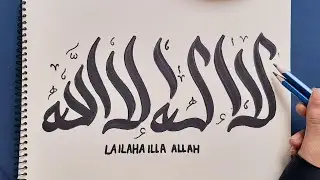 لا إله إلا الله
LA ILAHA ILLA ALLAH